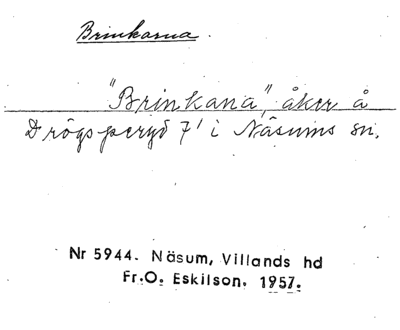 Brinkarna.
"Brinkana", åker å
Drögsperyd 7¹ i Näsums sn.
Nr 5944. Näsum, Villands hd
Fr.O. Eskilson. 1957.